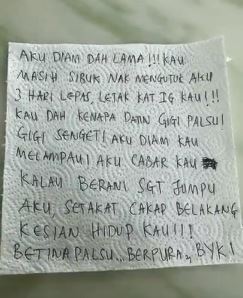 AKU DIAM DAH LAMA!!! KAU
MASIH SIBUK NAK MENGUTUK AKU
3 HARI LEPAS, LETAK KAT IG KAU!!!
KAU DAH KENAPA DATIN GIGI PALSU!
GIGI SENGET! AKU DIAM KAU
MELAMPAU! AKU CABAR KAU
KALAU BERANI SGT JUMPU
AKU, SETAKAT CAKAP BELAKANG
KESIAN HIDUP KAU!!!
BETINA PALSU... BERPURA2, BYK!